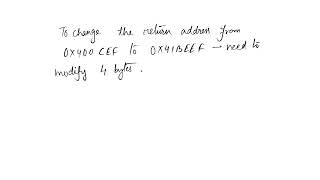 To change the return address from
0X400CEF to 0X41BEEF → need to
modify 4 bytes.